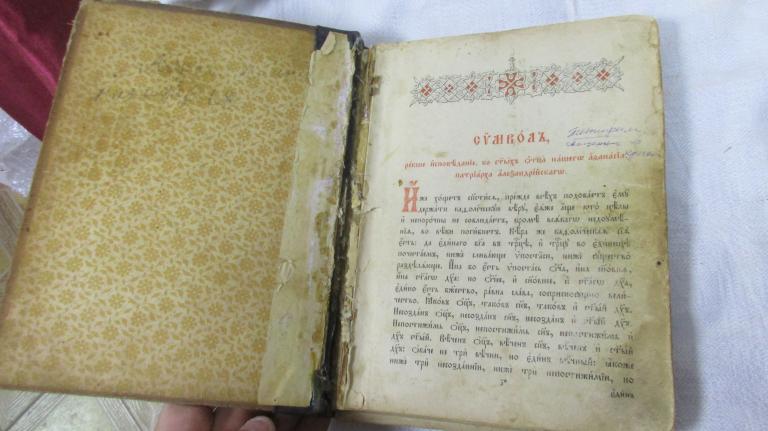 СѶМВО́ЛЪ,
ре́кше и҆сповѣ́данїе, во ст҃ы́хъ ѻ҆тца̀ на́шегѡ а҆ѳана́сїа
патрїа́рха а҆леѯандрі́йскагѡ.
И҆́же хо́щетъ сп҃сти́сѧ, пре́жде всѣ́хъ подоба́етъ є҆мꙋ̀
держа́ти каѳолі́ческꙋю вѣ́рꙋ, є҆ѧ́же а҆́ще кто̀ цѣ́лы
и҆ непоро́чны не соблюда́етъ, кромѣ̀ всѧ́кагѡ недоꙋмѣ́-
нїѧ, во вѣ́ки поги́бнетъ. Вѣ́ра же каѳолі́ческаѧ сїѧ̀
є҆́сть: да є҆ди́наго бг҃а въ трⷪ҇цѣ, и҆ трⷪ҇цꙋ во є҆ди́ницѣ
почита́емъ, нижѐ слива́юще ѵ҆поста̑си, нижѐ сꙋщество̀
раздѣлѧ́юще. И҆́на бо є҆́сть ѵ҆поста́сь ѻ҆́ч҃а, и҆́на сн҃о́внѧ,
и҆́на ст҃а́гѡ дх҃а: но ѻ҆́ч҃ее, и҆ сн҃о́внее, и҆ ст҃а́гѡ дх҃а,
є҆ди́но є҆́сть бж҃ество̀, ра́вна сла́ва, соприсносꙋ́щно вели́-
чество. Ꙗ҆ко́въ ѻ҆ц҃ъ, тако́въ сн҃ъ, тако́въ и҆ ст҃ы́й дх҃ъ.
Несозда́нъ ѻ҆ц҃ъ, несозда́нъ сн҃ъ, несозда́нъ и҆ ст҃ы́й дх҃ъ.
Непостижи́мь ѻ҆ц҃ъ, непостижи́мь сн҃ъ, непостижи́мь и҆
дх҃ъ ст҃ы́й. Вѣ́ченъ ѻ҆ц҃ъ, вѣ́ченъ сн҃ъ, вѣ́ченъ и҆ ст҃ы́й
дх҃ъ: ѻ҆ба́че не трѝ вѣ́чни, но є҆ди́нъ вѣ́чный: ꙗ҆́коже
нижѐ трѝ несозда́ннїи, нижѐ трѝ непостижи́мїи, но
є҆ди́нъ